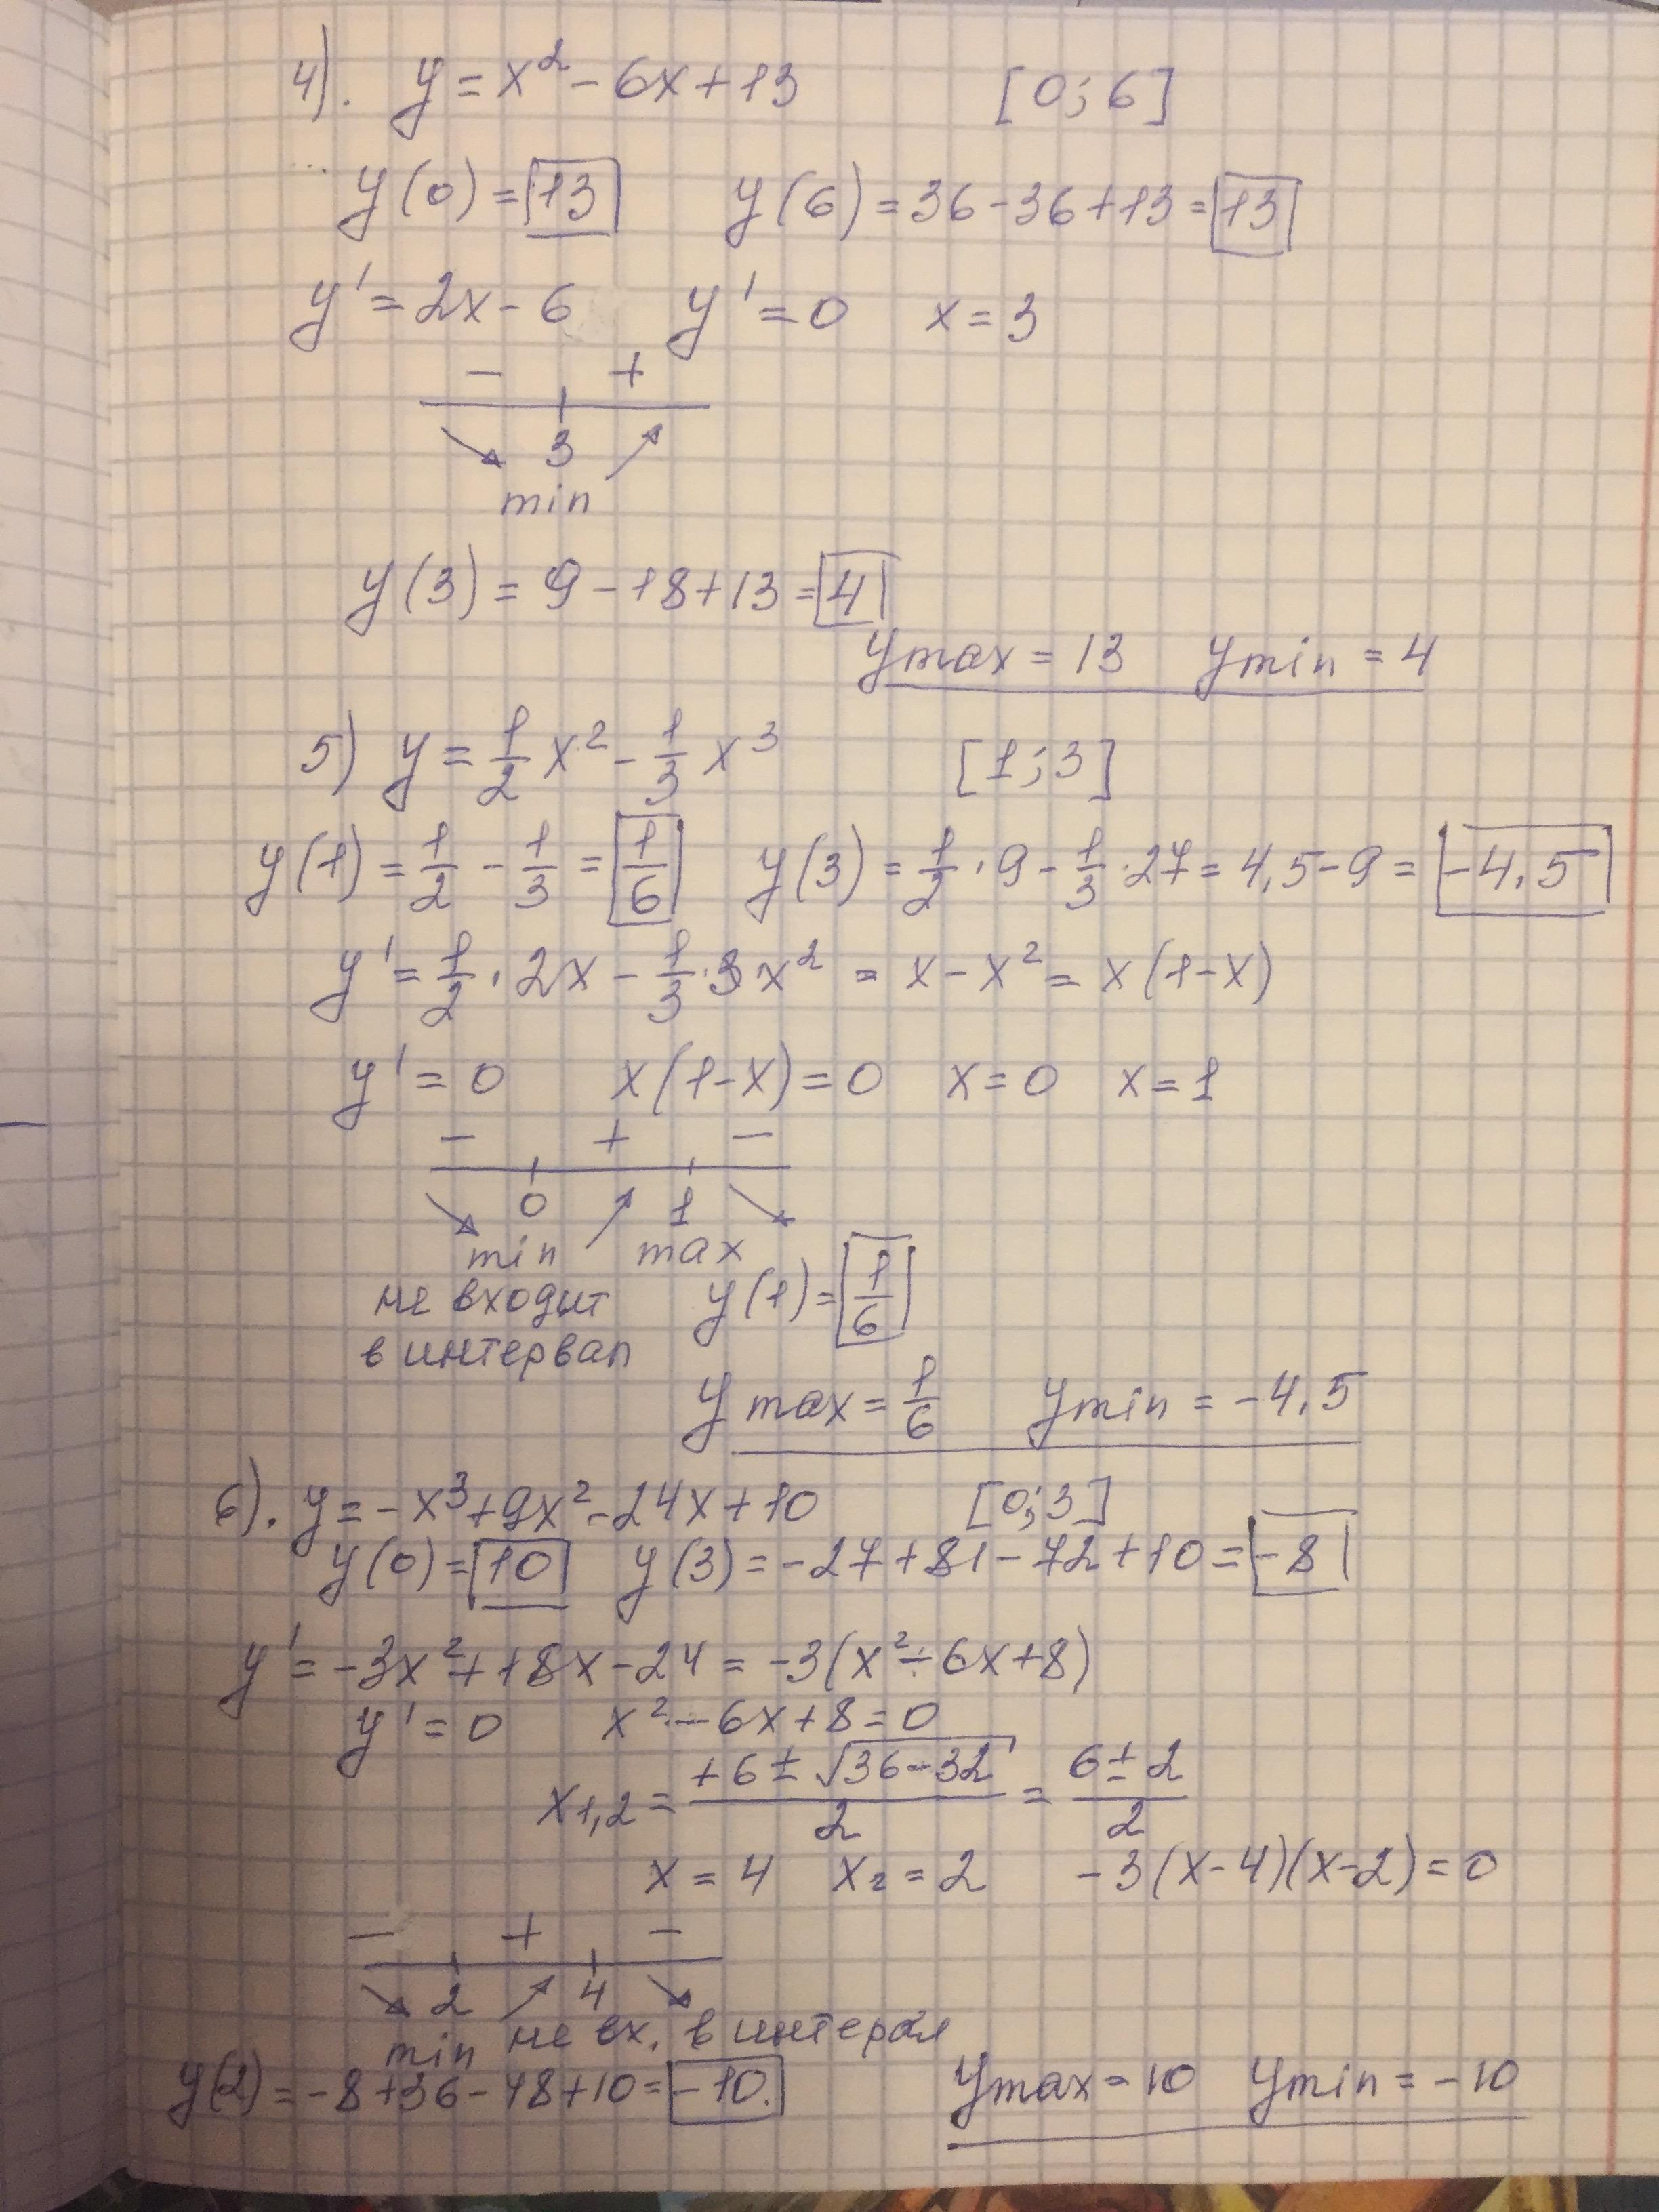 4). y = x² - 6x + 13 [0; 6]
y(0) = 13 y(6) = 36 - 36 + 13 = 13
y' = 2x - 6 y' = 0 x = 3
- +
3
min
y(3) = 9 - 18 + 13 = 4
ymax = 13 ymin = 4
5) y = 1/2 x² - 1/3 x³ [1; 3]
y(1) = 1/2 - 1/3 = 1/6 y(3) = 1/2 · 9 - 1/3 · 27 = 4,5 - 9 = -4,5
y' = 1/2 · 2x - 1/3 · 3 · x² = x - x² = x(1-x)
y' = 0 x(1-x) = 0 x = 0 x = 1
- + -
0 1
min max
не входит y(1) = 1/6
в интервал
y max = 1/6 ymin = -4,5
6). y = -x³ + 9x² - 24x + 10 [0; 3]
y(0) = 10 y(3) = -27 + 81 - 72 + 10 = -8
y' = -3x² + 18x - 24 = -3(x² - 6x + 8)
y' = 0 x² - 6x + 8 = 0
x1,2 = (+6 ± √36-32)/2 = (6 ± 2)/2
x = 4 x₂ = 2 -3(x-4)(x-2) = 0
- + -
2 4
min не вх. в интервал
y(2) = -8 + 36 - 48 + 10 = -10. ymax = 10 ymin = -10